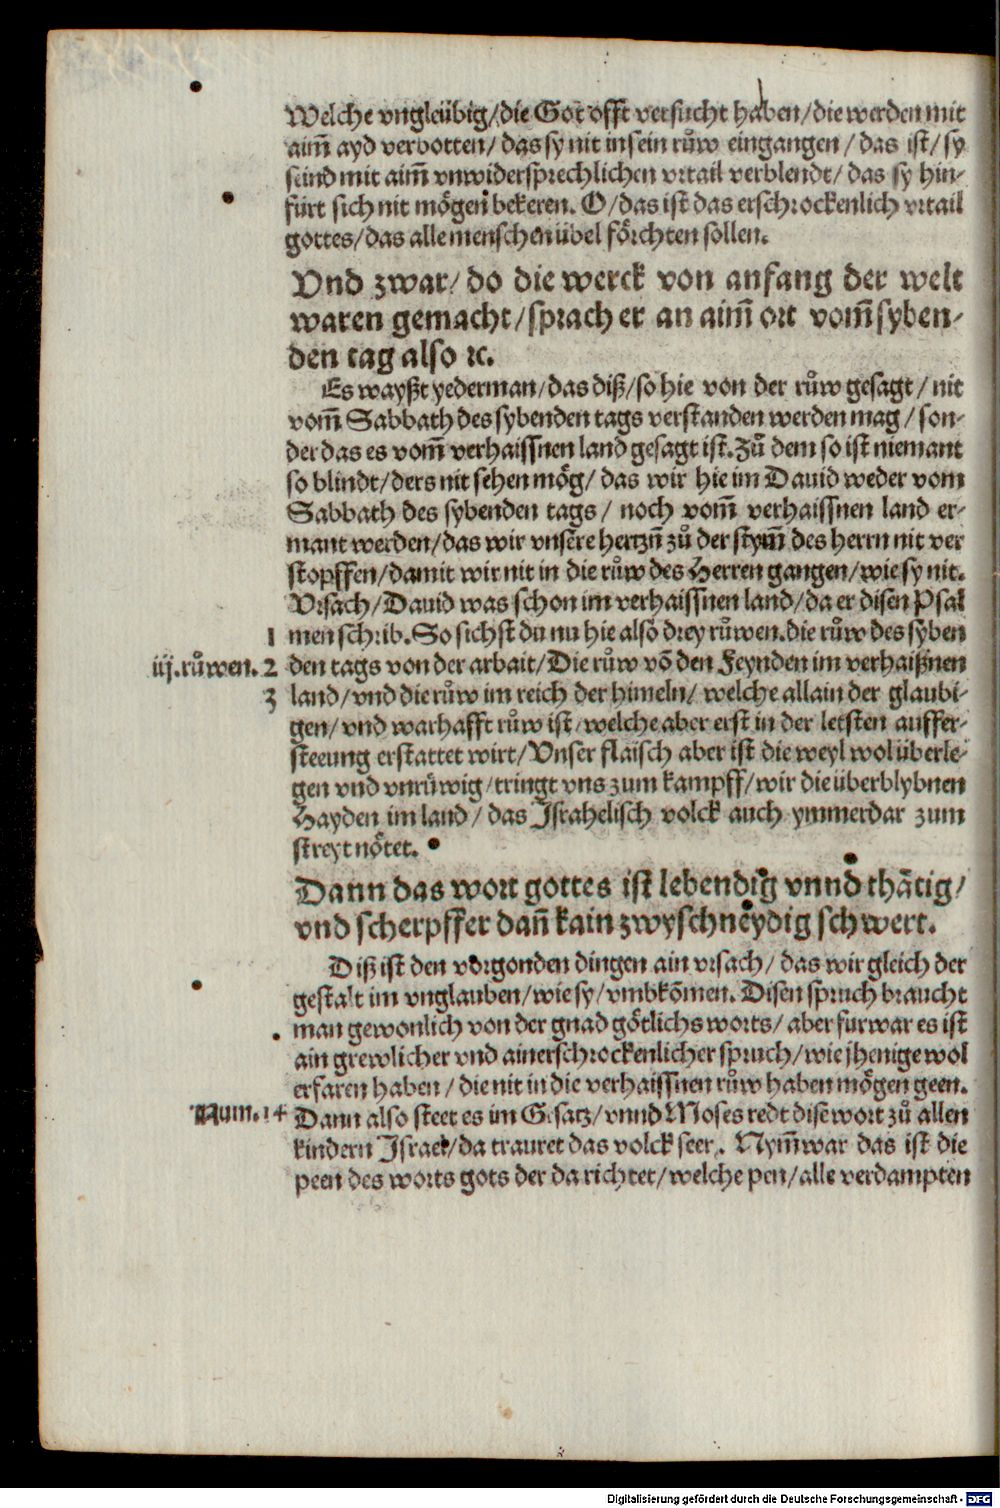 Welche vngleübig/die Got offt versucht haben/die werden mit
aim̃ ayd verbotten/ das sy nit in sein růw eingangen/ das ist/ sy
seind mit aim̃ vnwidersprechlichen vrtail verblendt/ das sy hin-
fürt sich nit mögen bekeren. O/das ist das erschrockenlich vrtail
gottes/das alle menschen übel förchten söllen.
Vnd zwar/ do die werck von anfang der welt
waren gemacht/sprach er an aim̃ ort vom̃ syben-
den tag also ꝛc.
Es wayßt yederman/das diß/so hie von der růw gesagt/ nit
vom̃ Sabbath des sybenden tags verstanden werden mag/ son-
der das es vom̃ verhaissnen land gesagt ist. Zů dem so ist niemant
so blindt/ders nit sehen mög/ das wir hie im Dauid weder vom
Sabbath des sybenden tags/ noch vom̃ verhaissnen land er-
mant werden/das wir vnsere hertzñ zů der stym̃ des herrn nit ver
stopffen/damit wir nit in die růw des Herren gangen/wie sy nit.
Vrsach/Dauid was schon im verhaissnen land/da er disen Psal
1 men schrib. So sichst du nu hie also drey růwen. die růw des syben
iij. růwen. 2 den tags von der arbait/Die růw võ den Feynden im verhaißnen
3 land/vnd die růw im reich der himeln/ welche allain der glaubi-
gen/vnd warhafft růw ist/welche aber erst in der letsten auffer-
steeung erstattet wirt/Vnser flaisch aber ist die weyl wol überle-
gen vnd vnrüwig/tringt vns zum kampff/wir die überblybnen
Hayden im land/ das Israhelisch volck auch ymmerdar zum
streyt nötet.
Dann das wort gottes ist lebendig vnnd thätig/
vnd scherpffer dañ kain zwyschneydig schwert.
Diß ist den vorgonden dingen ain vrsach/ das wir gleich der
gestalt im vnglauben/wie sy/vmbkõmen. Disen spruch braucht
man gewonlich von der gnad götlichs worts/aber furwar es ist
ain grewlicher vnd ain erschrockenlicher spruch/wie jhenige wol
erfaren haben/die nit in die verhaissnen růw haben mögen geen.
Num. 14 Dann also steet es im Gesatz/vnnd Moses redt dise wort zů allen
kindern Israel/da trauret das volck seer. Nym̃ war das ist die
peen des worts gots der da richtet/welche pen/alle verdampten
Digitalisierung gefördert durch die Deutsche Forschungsgemeinschaft - DFG